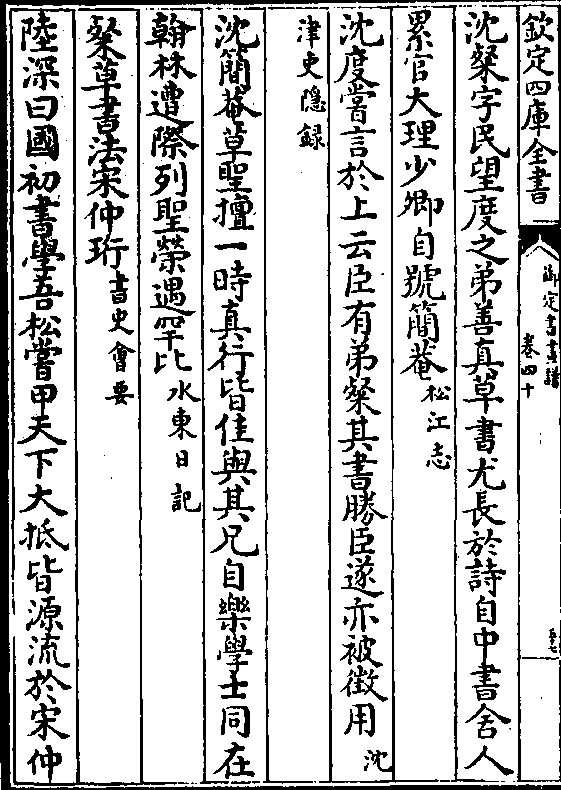 欽定四庫全書
御定書畫譜
卷四十
五十七
沈粲字民望度之弟善真草書尤長於詩自中書舍人
累官大理少卿自號簡菴松江志
沈度嘗言於上云臣有弟粲其書勝臣遂亦被徵用沈
津吏隱録
沈簡菴草聖擅一時真行皆佳與其兄自樂學士同在
翰林遭際列聖榮遇罕比水東日記
粲草書法宋仲珩書史會要
陸深曰國初書學吾松嘗甲天下大抵皆源流於宋仲